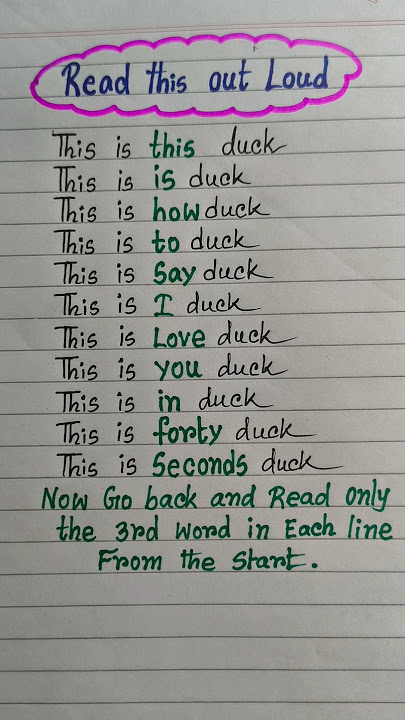 Read this out Loud
This is this duck
This is is duck
This is how duck
This is to duck
This is Say duck
This is I duck
This is Love duck
This is you duck
This is in duck
This is forty duck
This is Seconds duck
Now Go back and Read only
the 3rd word in Each line
From the Start.